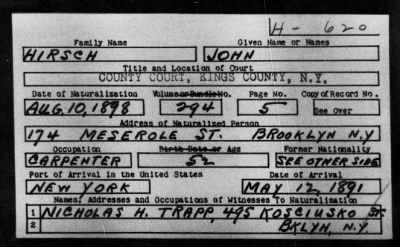 H- 620
Family Name Given Name or Names
HIRSCH JOHN
Title and Location of Court
COUNTY COURT, KINGS COUNTY, N.Y.
Date of Naturalization Volume or Bundle No. Page No. Copy of Record No.
AUG. 10, 1898 294 5 See Over
Address of Naturalized Person
174 MESEROLE ST. BROOKLYN N.Y
Occupation Birth Date or Age Former Nationality
CARPENTER 52 SEE OTHER SIDE
Port of Arrival in the United States Date of Arrival
NEW YORK MAY 12, 1891
Names, Addresses and Occupations of Witnesses To Naturalization
1 NICHOLAS H. TRAPP, 495 KOSCIUSKO ST.
2 BKLYN, N.Y.